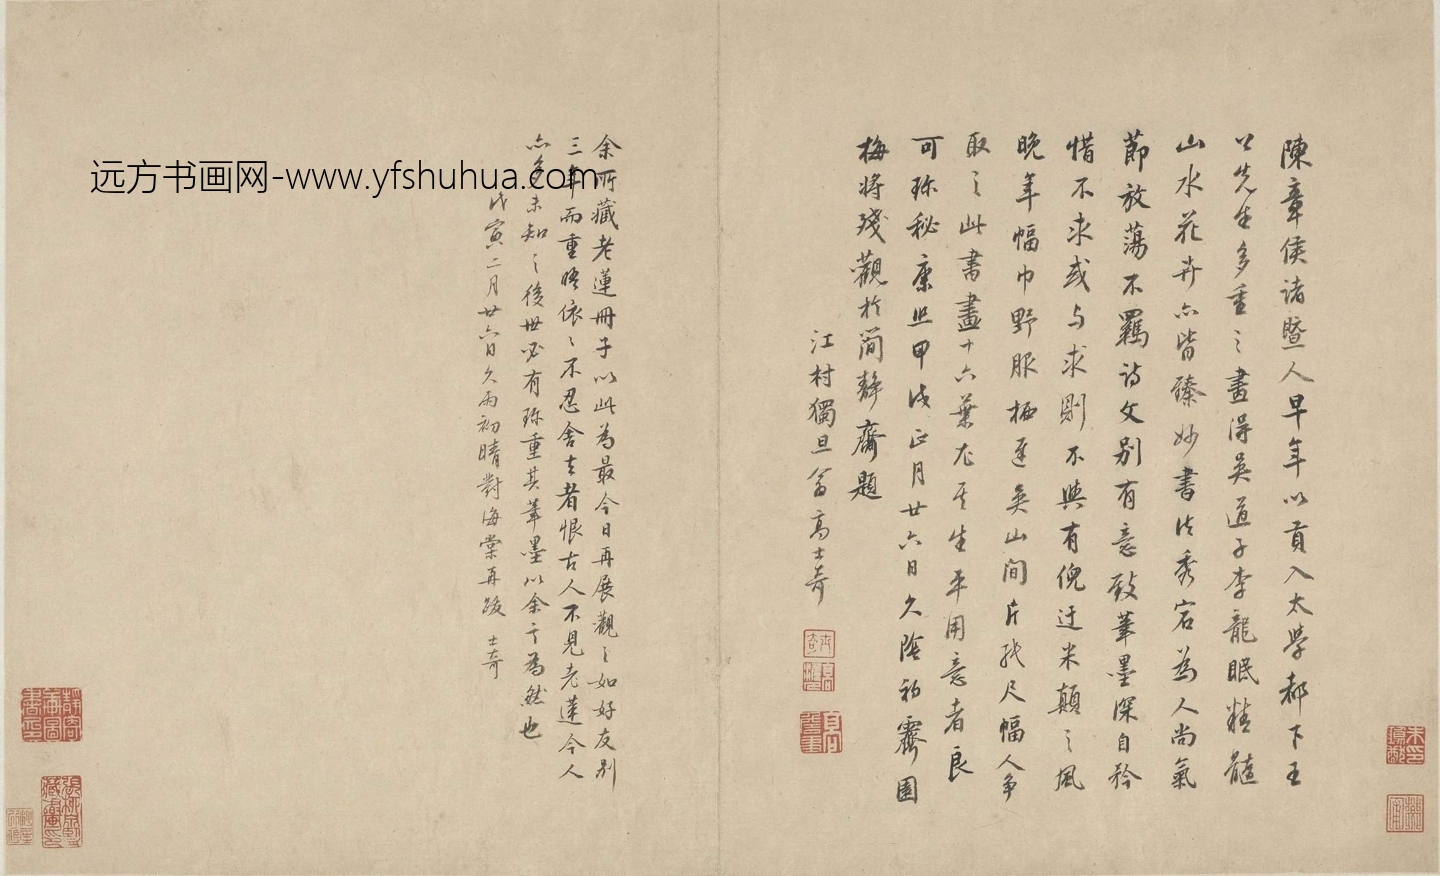 陳章侯諸暨人早年以貢入太學都下王
公先生多重之畫得吳道子李龍眠精髓
山水花卉亦皆臻妙書法秀宕為人尚氣
節放蕩不羈詩文別有意致筆墨深自矜
惜不求或与求則不與有倪迂米顛之風
晚年幅巾野服栖遲吳山間片紙尺幅人爭
取之此書畫十六葉尤其生平用意者良
可珎秘康熙甲戌正月廿六日久陰初霽園
梅將殘觀於簡靜齋題
江村獨旦翁高士奇
余所藏老蓮冊子以此為最今日再展觀之如好友別
三年而重晤依〻不忍舍去者恨古人不見老蓮今人
亦多未知之後世必有珎重其筆墨以余言為然也
戊寅二月廿六日久雨初晴對海棠再跋 士奇
远方书画网-www.yfshuhua.com